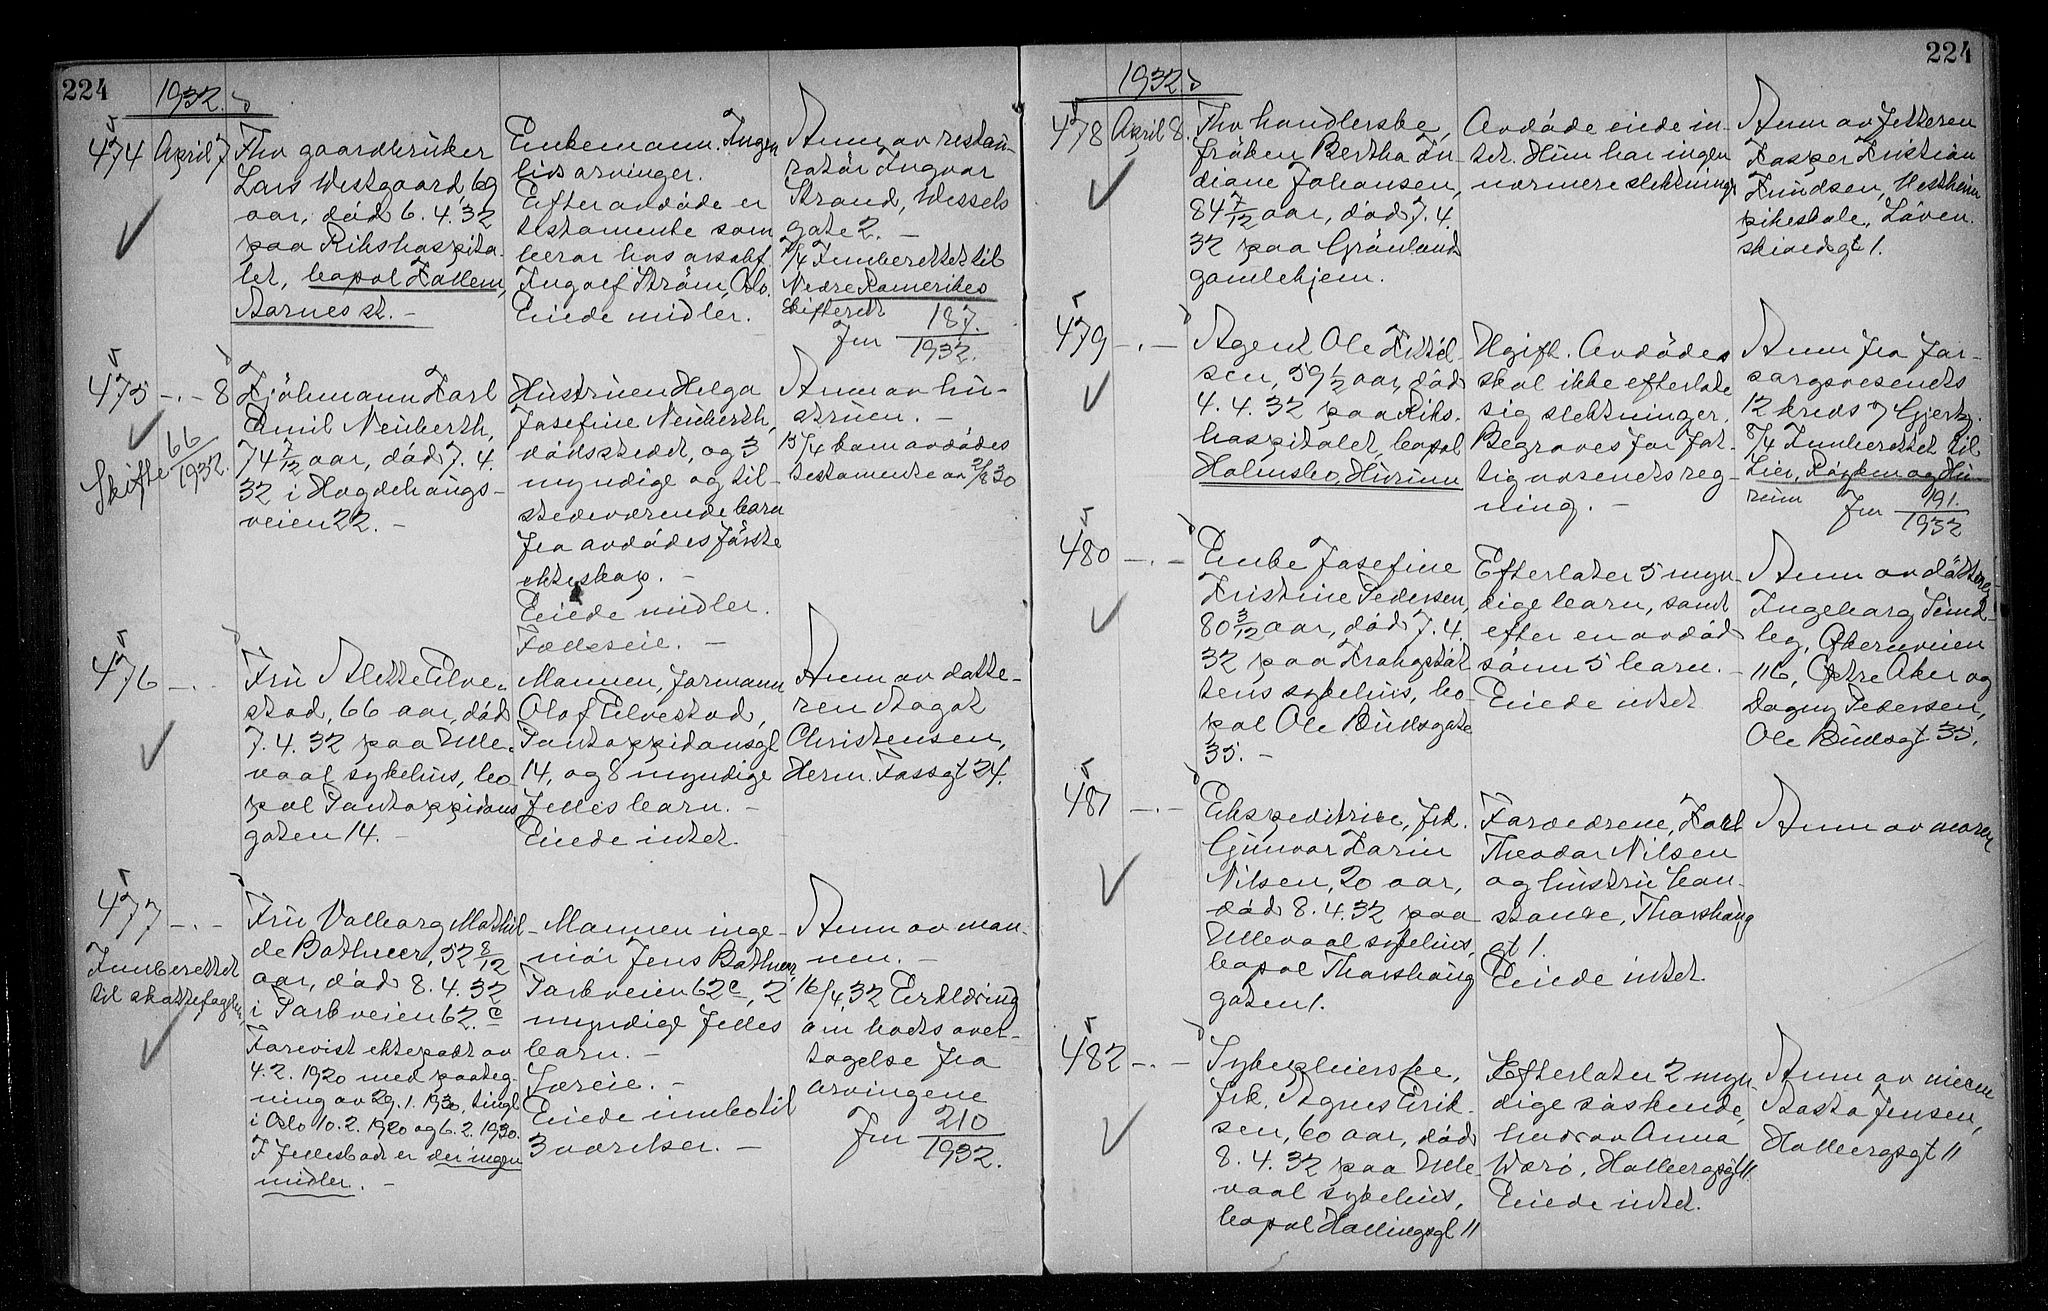 224
1932.
474 April 7
Fhv gaardbruker
Lars Westgaard, 69
aar, död 6. 4. 32
paa Rikshospita-
let, bopol Hallem,
Aarnes st. -
Enkemann. Ingen
livsarvinger.
Efter avdöde er
testamente som
beror hos o.r.sakf.
Ingolf Ström, Oslo.
Eiede midler.
Anm av restau-
ratör Ingvar
Strand, Wessels
gate 2. -
/4 Innberettet til
Nedre Romerikes
skifterett
Jnr 187.
1932.
475 -.- 8
Skifte 66
1932.
Sjöhmann Karl
Emil Neuberth,
74 7/12 aar, död 7. 4.
32 i Hogdehaugs-
veien 22. -
Hustruen Helga
Josefine Neuberth,
dödsstedet, og 3
myndige og til-
stedeværende barn
fra avdödes förste
ekteskap. -
Eiede midler.
Fælleseie. -
Anm av hu-
struen. -
15/4 kom avdödes
testamente av 2/8 30
476 -.-
Fru Alette Elve-
stad, 66 aar, död
7. 4. 32 paa Ulle-
vaal sykehus, bo-
pol Pontoppidans
gaten 14. -
Mannen, formann
Olaf Elvestad,
Pontoppidansgt
14, og 8 myndige
felles barn. -
Eiede intet.
Anm av datte-
ren Aagot
Christensen,
Herm. Fossgt 24.
477 -.-
Innberettet
til skattefogden
Fru Valborg Mathil-
de Bothner, 52 8/12
aar, död 8. 4. 32
i Parkveien 62. c
Forevist ektepakt av
4. 2. 1920 med paateg-
ning av 29. 1. 1930, tingl
i Oslo 10. 2. 1920 og 6. 2. 1930.
I fellesbodet er der ingen
midler. -
Mannen inge-
niör Jens Bothner,
Parkveien 62 c, 2
myndige felles
barn. -
Særeie. -
Eiede innbo til
3 værelser. -
Anm av man-
nen. -
16/4 32 Erklæring
om bodets over-
tagelse fra
arvingene
Jnr 210
1932.
224
1932
478 April 8.
Fhv handlerske,
fröken Bertha In-
diane Johansen,
84 7/12 aar, död 7. 4.
32 paa Grönland
gamlehjem.
Avdöde eiede in-
tet. Hun har ingen
nærmere slektninge
Anm av fetteren
Kasper Kristian
Knudsen, Westheim
pikeskole, Löven-
skioldsgt 1.
479 -.-
Agent Ole Ketil-
sen, 59 1/2 aar, död
4. 4. 32 paa Riks-
hospitalet, bopol
Holmsbo, Hurum
Ugift. Avdöde
skal ikke efterlate
sig slektninger.
Begraves for fat-
tigvesenets reg-
ning. -
Anm fra for-
sorgsvesenets
12 kreds v/ Gjertz.
8/4 Innberettet til
Lier, Röyken og Hu-
rum Jnr 191.
1932
480 -.-
Enke Josefine
Kristine Pedersen,
80 3/12 aar, död 7. 4.
32 paa Krohgstöt
tens sykehus, bo-
pol Ole Bullsgate
35. -
Efterlater 5 myn-
dige barn, samt
efter en avdöd
sönn 5 barn. -
Eiede intet
Anm av döttre
Ingeborg Sund-
bey, Økernveien
116, Östre Aker og
Dagny Pedersen,
Ole Bullsgt 35.
481 -.-
Ekspeditrise, frk.
Gunvor Karin
Nilsen, 20 aar,
död 8. 4. 32 paa
Ullevaal sykehus,
bopol Thorshaug
gaten 1.
Foreldrene, Karl
Theodor Nilsen
og hustru Kon-
stance, Thorshaug
gt 1.
Eiede intet.
Anm av moren
482 -.-
Sykepleierske,
frk. Agnes Erik-
sen, 60 aar, död
8. 4. 32 paa Ulle-
vaal sykehus,
bopol Hallingsgt 11
Efterlater 2 myn-
dige söskende,
hvorav Anna
Værö, Hallingsgt 11.
Eiede intet.
Anm av niesen
Aasta Jensen,
Hallingsgt 11